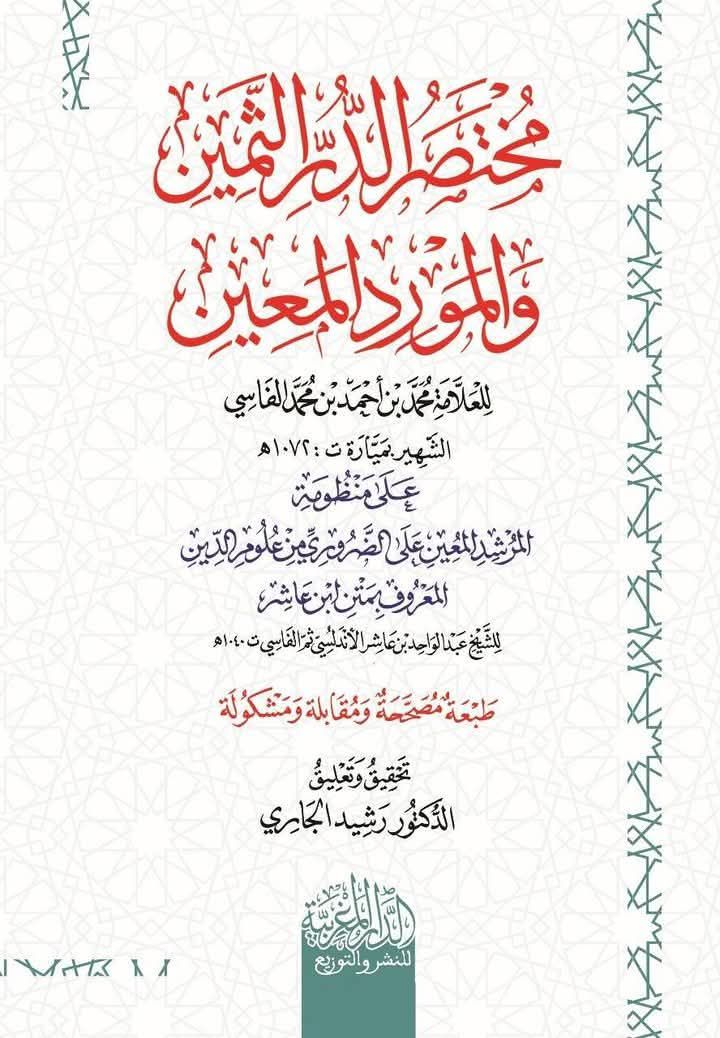 مُخْتَصَرُ الدُّرِّ الثَّمِينِ
وَالمَوْرِدِ المَعِينِ
لِلعَلَّامَةِ مُحَمَّد بْنِ أَحْمَد بْنِ مُحَمَّد الفَاسِي
الشَّهِير بِمَيَّارَة ت : ١٠٧٢ه
عَلَى مَنْظُومَةِ
المُرْشِدِ المُعِينِ عَلَى الضَّرُورِيِّ مِنْ عُلُومِ الدِّينِ
المَعْرُوفِ بِمَتْنِ ابْنِ عَاشِر
لِلشَّيْخِ عَبْد الوَاحِد بْن عَاشِر الأَنْدَلُسِيّ ثُمّ الفَاسِي ت ١٠٤٠ه
طَبْعَةٌ مُصَحَّحَةٌ وَمُقَابلَة وَمَشْكُولَة
تَحْقِيقُ وَتَعْلِيقُ
الدُّكْتُور رَشِيد الجَارِي
الدَّار المَغْرِبِيَّة
للنشر والتوزيع